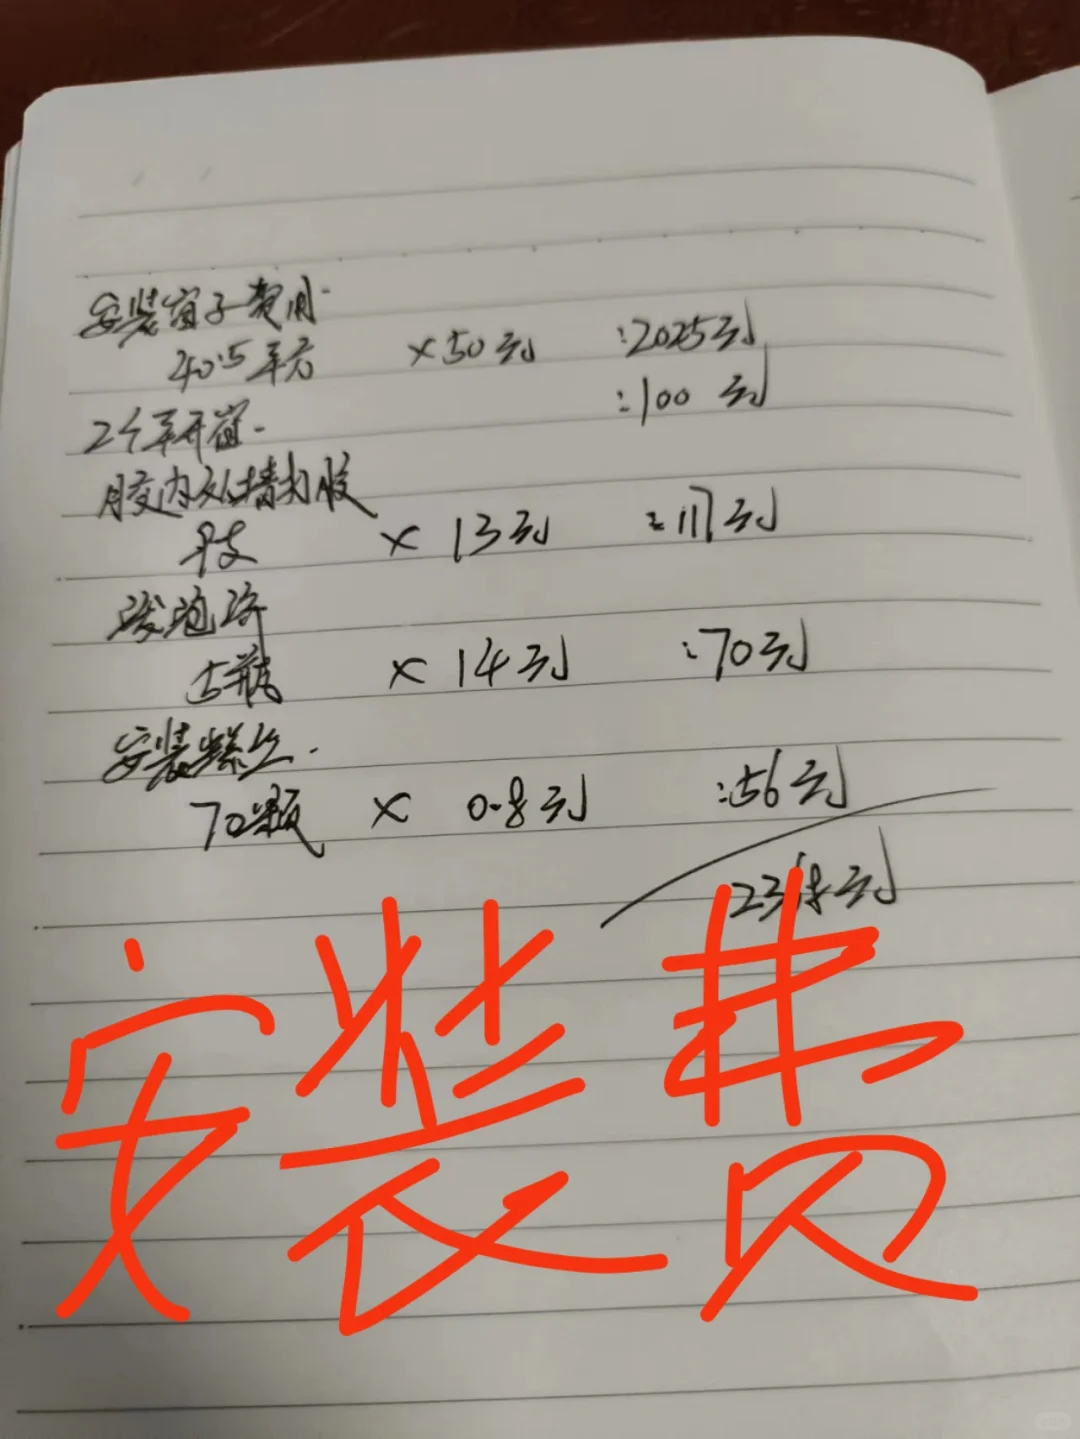 安装窗子费用.
40.5平方 ×50元 :2025元
2个平开窗. :100元
胶内外墙打胶
9支 × 13元 :117元
发泡济
5瓶 × 14元 :70元
安装螺丝.
70颗 × 0.8元 :56元
2368元
安装费